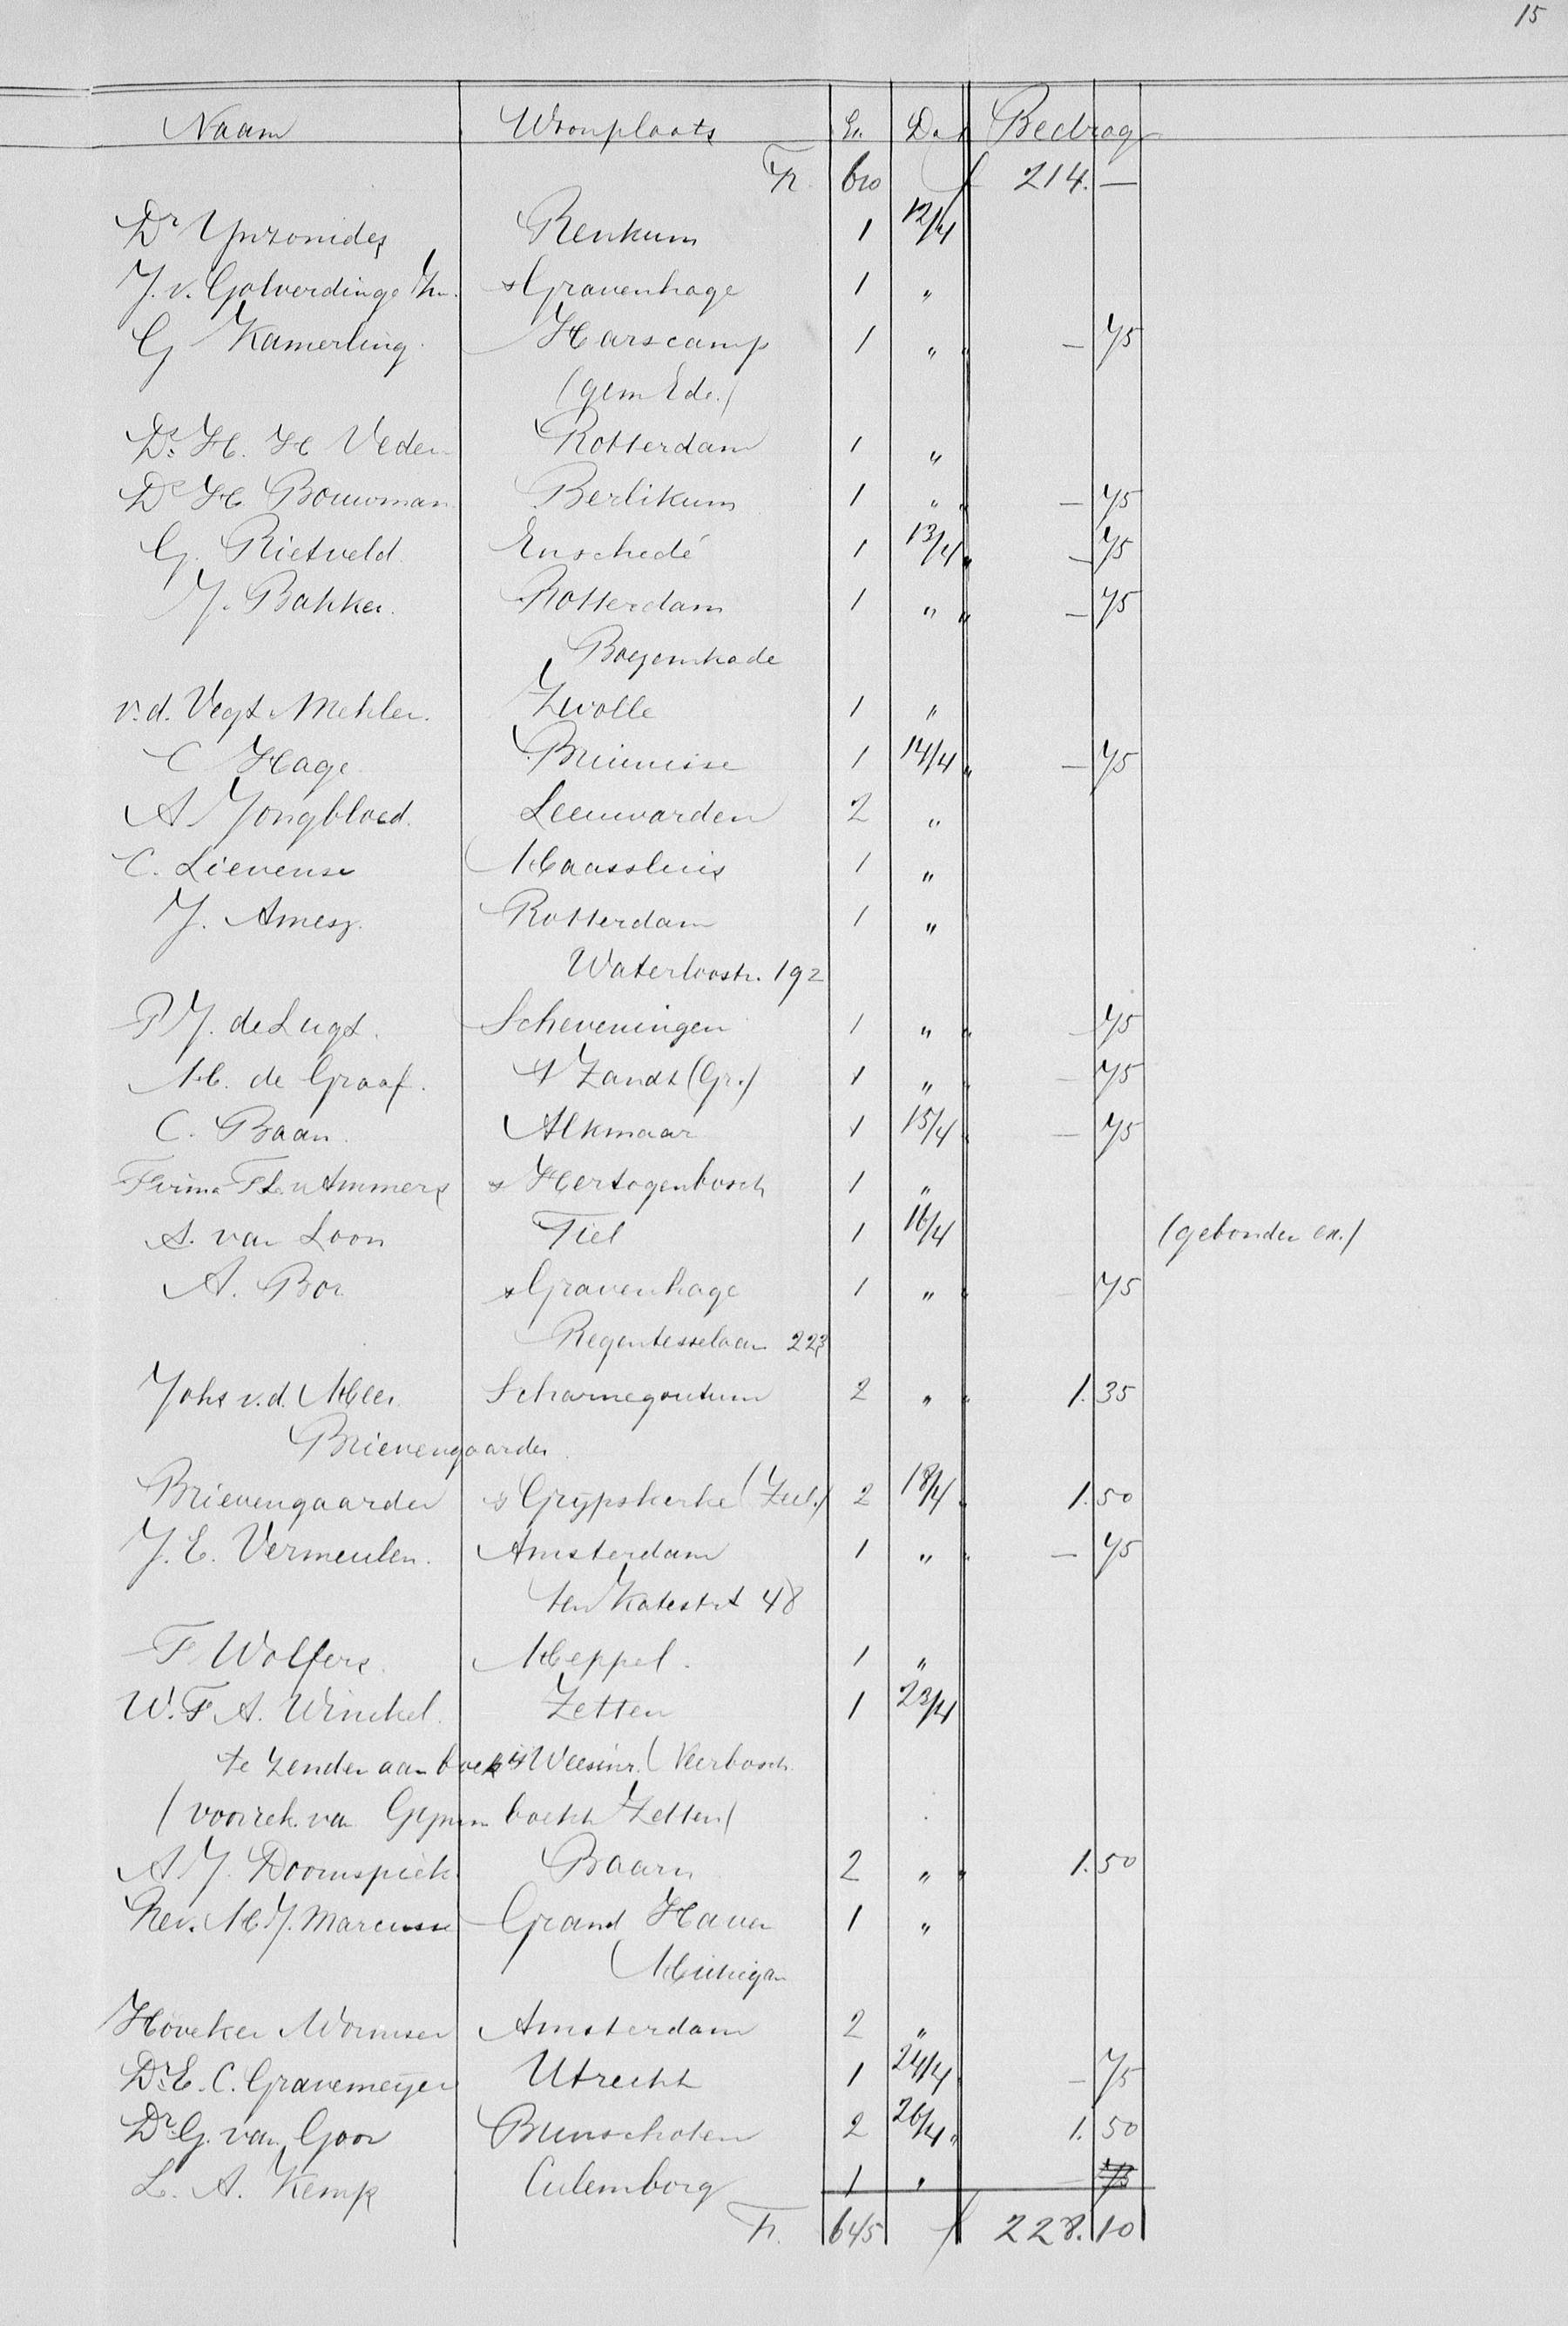 15
Naam Woonplaats Ex. Dat Bedrag
Tr. 610 f 214. —
Dr Ypzonides Renkum 1 12/4
J. v. Golverdinge Jzn. s Gravenhage 1 "
G Kamerling Harscamp 1 " " — 75
(gem Ede.)
Ds. H. H Veder Rotterdam 1 "
Ds H Bouwman Berlikum 1 " " — 75
G. Rietveld Enschedé 1 13/4 " — 75
J. Bakker. Rotterdam 1 " " — 75
Boezemkade
v.d. Vegt Mehler. Zwolle 1 "
C Hage Bruinisse 1 14/4 " — 75
A Jongbloed. Leeuwarden 2 "
C. Lievense Maassluis 1 "
J. Amesz. Rotterdam 1 "
Waterloostr. 192
P J. de Lugt. Scheveningen 1 " " — 75
M. de Graaf. 't Zandt (Gr.) 1 " " — 75
C. Baan. Alkmaar 1 15/4 " — 75
Firma v Ammers s Hertogenbosch 1 "
S. van Loon Tiel 1 16/4 (gebonden ex.)
A. Bor. s Gravenhage 1 " " — 75
Regentesselaan 223
Johs v.d. Meer Scharnegoutum 2 " " 1. 35
Brievengaarder.
Brievengaarder s Grypskerke (Zeel.) 2 18/4 " 1. 50
J. E. Vermeulen. Amsterdam 1 " " — 75
ten Katestrt 48
F Wolfers. Meppel. 1 "
W. F A. Winckel. Zetten 1 23/4
te zenden aan boekh Weesinr. (Neerbosch
(voor rek. van Gymn boekh Zetten)
A J. Doornspiek. Baarn 2 " " 1. 50
Rev. M J. Marcusse Grand Haven 1 "
Michigan
Höveker Wormser Amsterdam 2 "
Dr. E. C. Gravemeyer Utrecht 1 24/4 — 75
Dr. G. van Goor Bunschoten 2 26/4 " 1. 50
L. A. Kemp Culemborg 1 " — 75
Tr. 645 f 228. 10